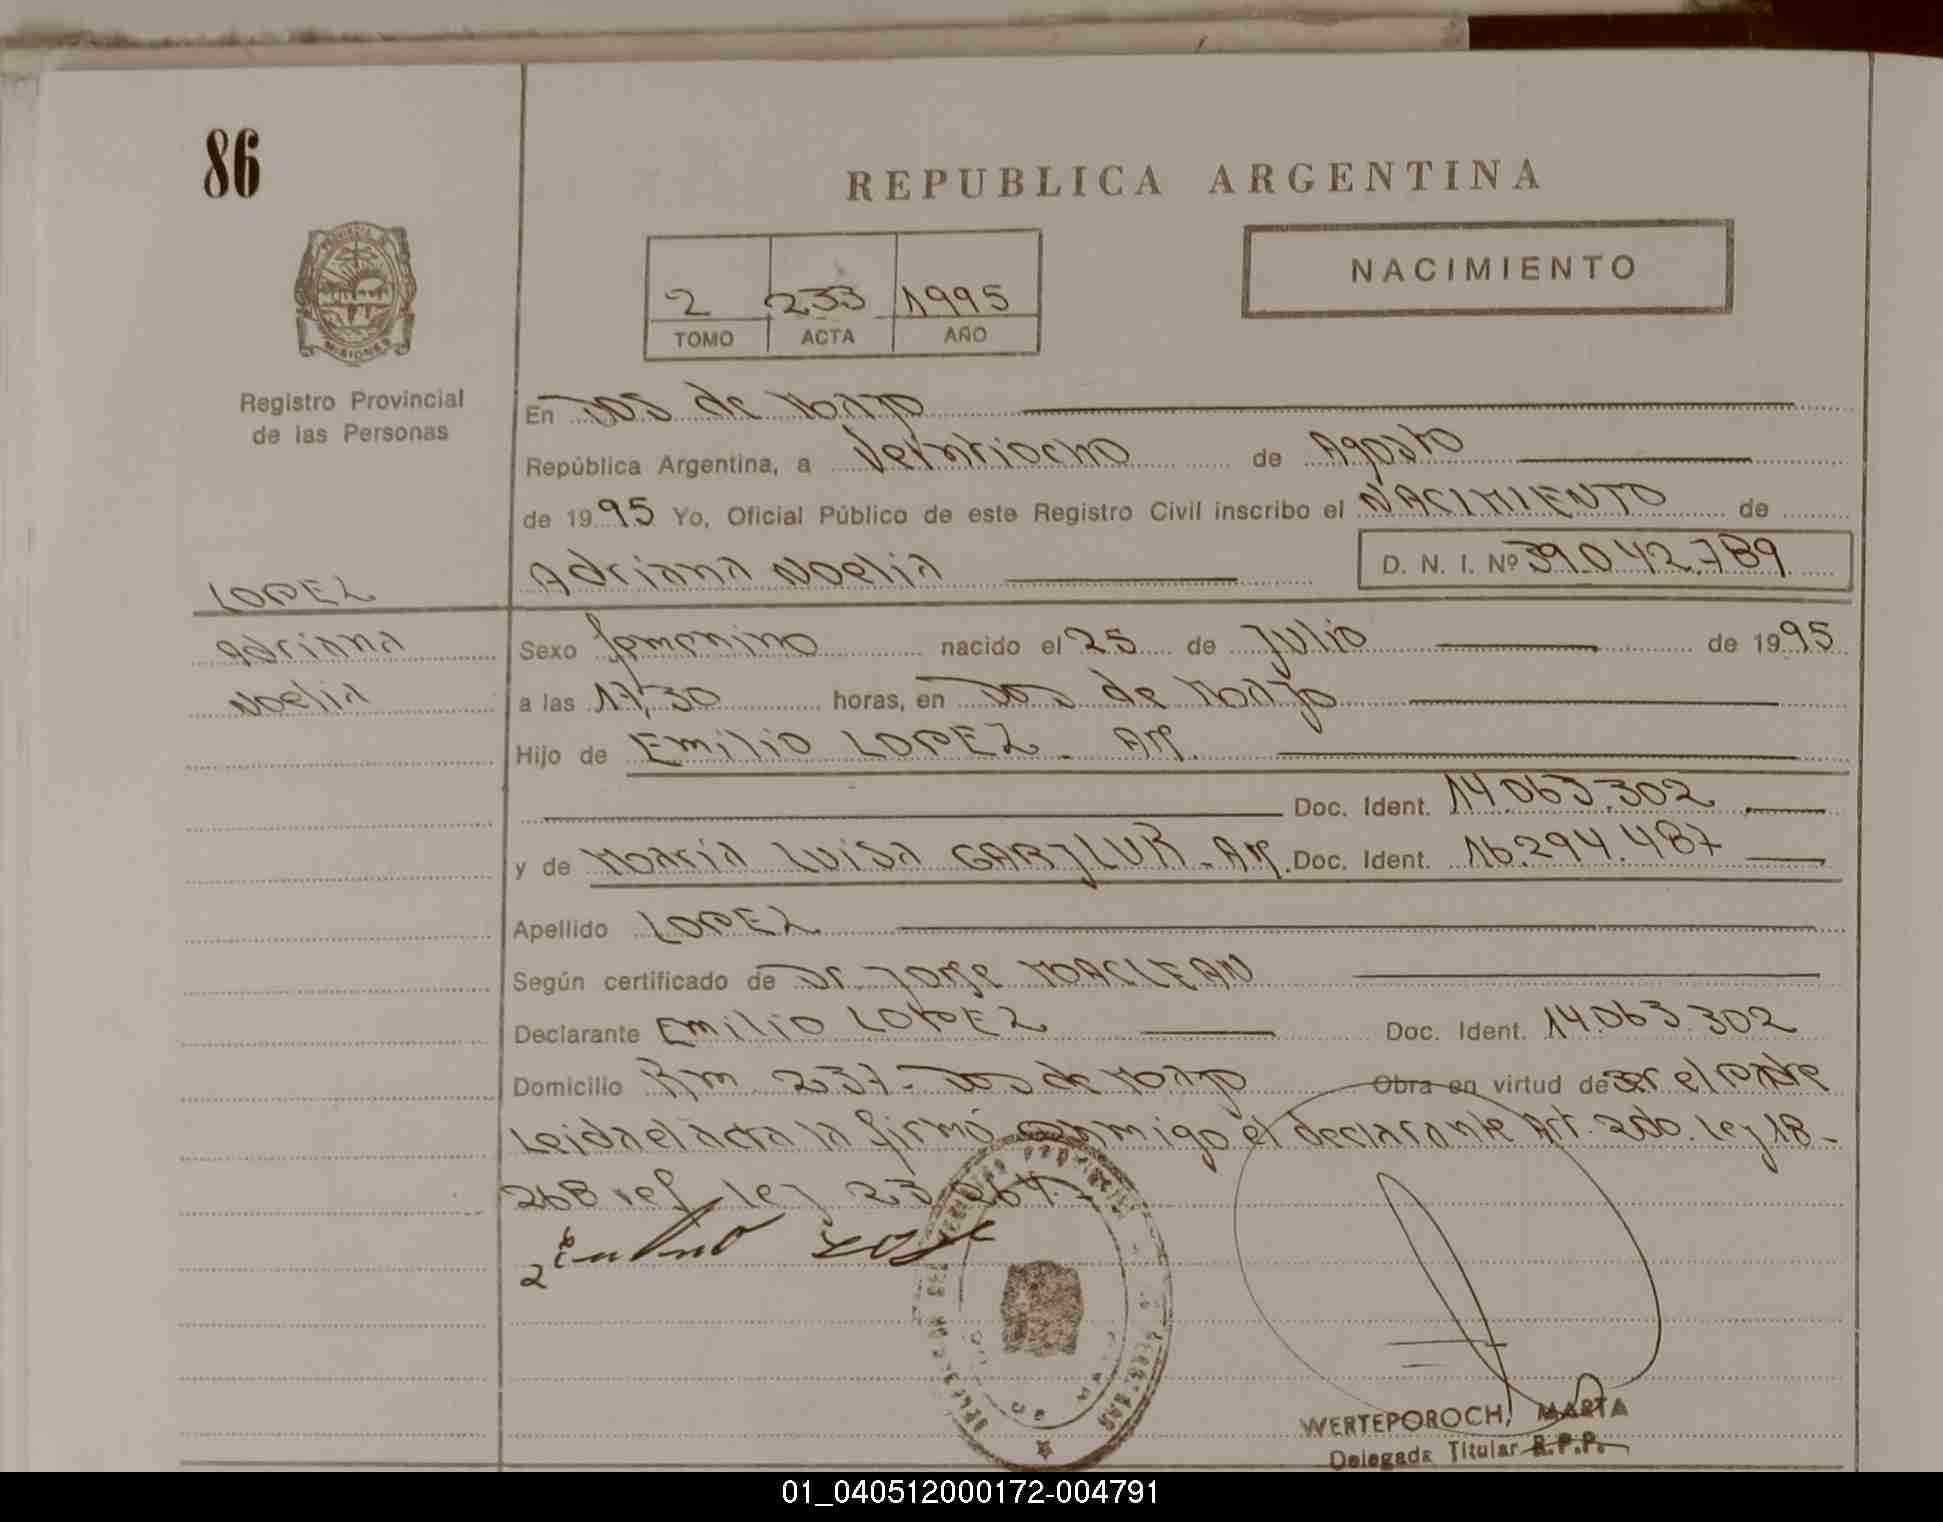 86
REPUBLICA ARGENTINA
NACIMIENTO
2 233 1995
TOMO ACTA AÑO
MISIONES
Registro Provincial
de las Personas
En Dos de Mayo
República Argentina, a Veintiocho de Agosto
de 1995 Yo, Oficial Público de este Registro Civil inscribo el NACIMIENTO de
Adriana Noelia D. N. I. Nº 39.042.789
LOPEZ
Adriana
Noelia
Sexo femenino nacido el 25 de Julio de 1995
a las 17,30 horas, en Dos de Mayo
Hijo de Emilio LOPEZ - Arg.
Doc. Ident. 14.063.302
y de María Luisa - Arg. Doc. Ident. 16.294.487
Apellido LOPEZ
Según certificado de Dr. Jorge MACLEAN
Declarante Emilio LOPEZ Doc. Ident. 14.063.302
Domicilio Km 237 - Dos de Mayo Obra en virtud de ser el padre
Leida el acta la firmó conmigo el declarante Art. 2do. Ley 18-
268 ref ley 23.264.-
WERTEPOROCH, MARTA
Delegada Titular R.P.P.
01_040512000172-004791